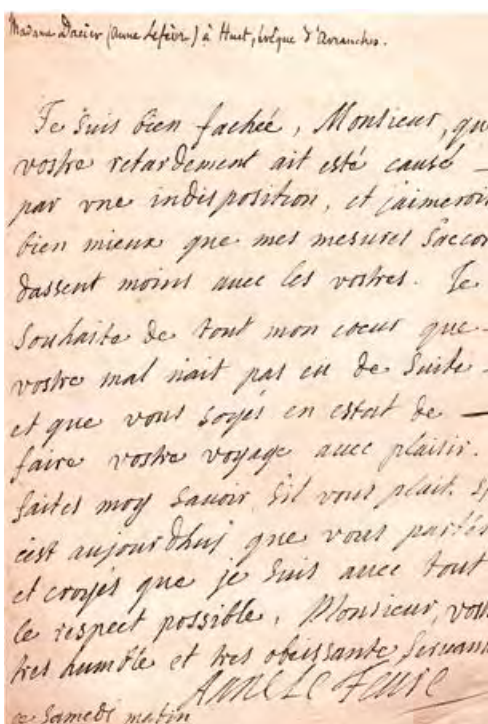 Madame Dacier (Anne Lefèvre) à Huet, évêque d'Avranches.
Je suis bien fachée, Monsieur, que
vostre retardement ait esté causé
par vne indisposition, et j'aimerois
bien mieux que mes mesures s'accor
dassent moins auec les vostres. Je
souhaite de tout mon coeur que
vostre mal n'ait pas eu de suite
et que vous soyés en estat de
faire vostre voyage auec plaisir.
faites moy sauoir s'il vous plait. si
c'est aujourdhuj que vous partés
et croyés que je suis auec tout
le respect possible, Monsieur, vost
tres humble et tres obeissante seruant
ANNE LE FEURE
ce Samedi matin